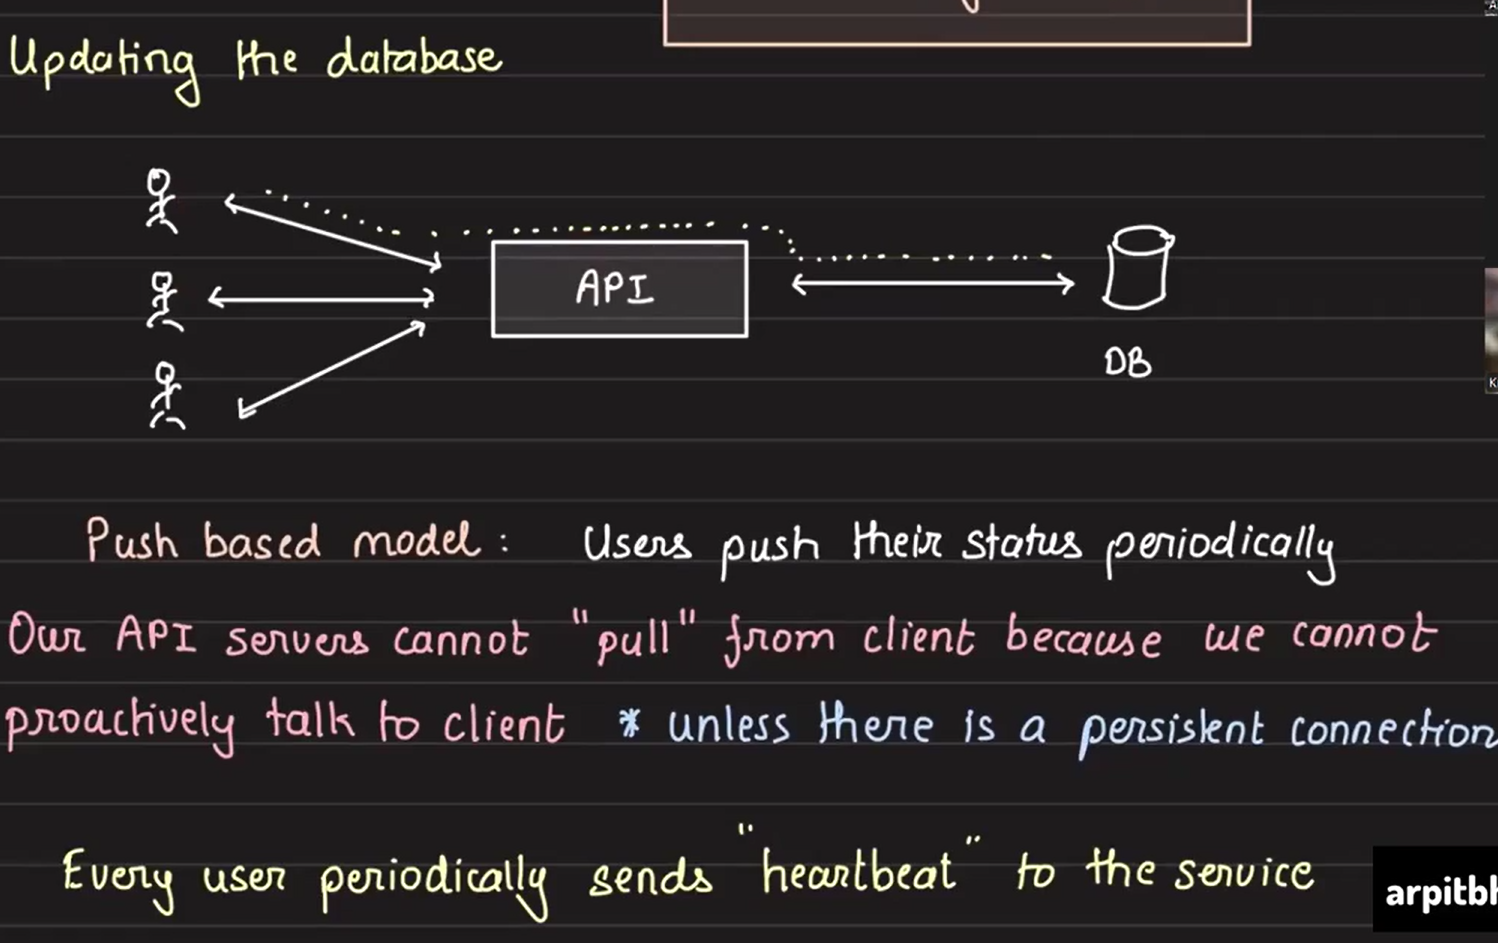 Updating the database
API
DB
Push based model : Users push their status periodically
Our API servers cannot "pull" from client because we cannot
proactively talk to client * unless there is a persistent connection
Every user periodically sends "heartbeat" to the service
arpitbh
K